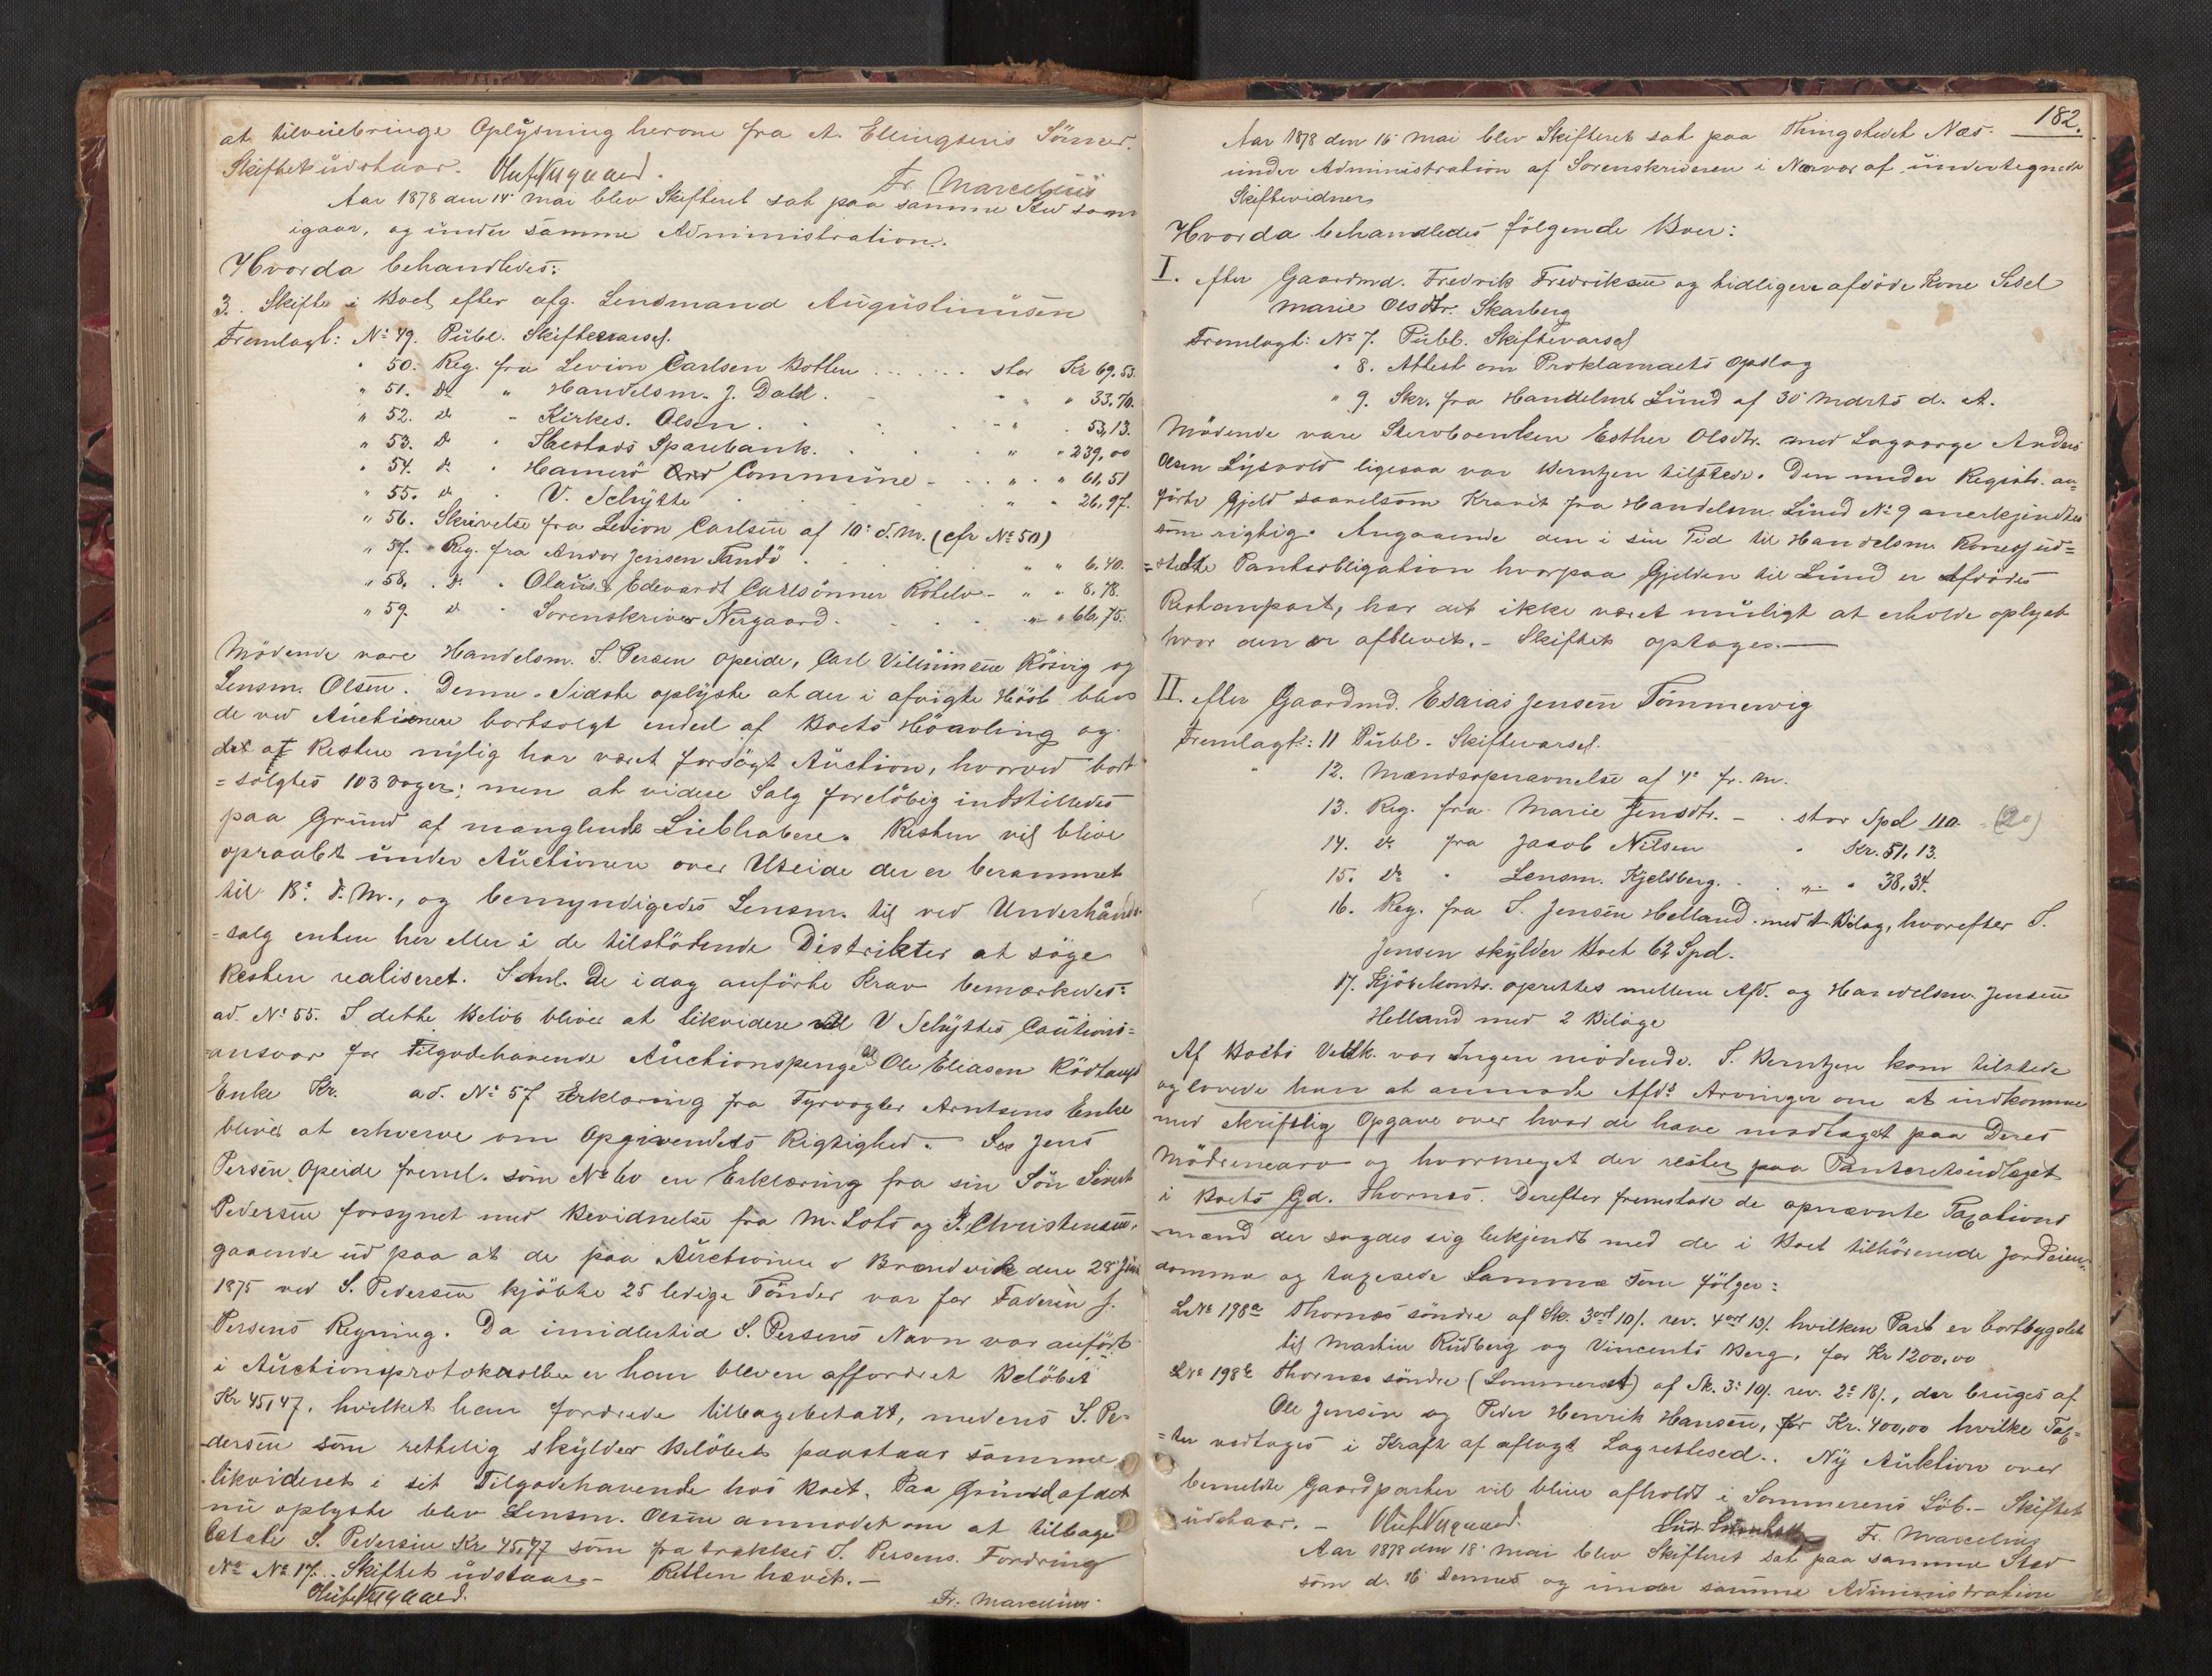 at tilveiebringe Oplysning herom fra A. Ellingsens Sönner.
Skiftet udstaar. Oluf Nergaard.
Fr. Marcelius
Aar 1878 den 14de Mai blev Skifteret sat paa samme Sted som
igaar, og under samme Administration.
Hvorda behandledes:
3. Skifte i Boet efter afg. Lensmand Augustinusen
Fremlagt: No 49. Publ. Skiftevarsel.
" 50. Reg. fra Levion Carlsen Botten ...... stor Kr 69.53.
" 51. do " Handelsm. J. Dahl. - " " 33,70.
" 52. do " Kirkes. Olsen. - " . 53,13.
" 53. do " Ibestads Sparebank. " " 239,00
" 54. do " Hamerö Commune - " " 61,51
" 55. do " V. Schytte " " 26,97.
" 56. Skrivelse fra Levion Carlsen af 10de d. M. (cfr No 50)
" 57. Reg. fra Andor Jensen Tandö " " 6,40.
" 58. do " Olaus & Edevardt Carlsönner Rötelv - " " 8,78.
" 59. do " Sorenskriver Nergaard. " " 66,75.
Mödende vare Handelsm. S. Persen Opeide, Carl Villumsen Rösvig og
Lensm. Olsen. Denne Sidste oplyste at der i afvigte Höst blev
de ved Auctionen bortsolgt endeel af Boets Höavling og
det af Resten nylig har været forsögt Auction, hvorved bort
=solgtes 103 Voger; men at videre Salg forelöbig indstilledes
paa Grund af manglende Liebhabere. Resten vil blive
opraabt under Auctionen over Uteide der er berammet
til 18de d. M., og bemyndigedes Lensm. til ved Underhånds
=salg enten her eller i de tilstödende Distrikter at söge
Resten realiseret. I Anl. de idag anförte Krav bemærkedes:
ad. No 55. I dette Belöb bliver at likvidere V Schyttes Cautions=
=ansvar for Tilgodehavende Auctionspenge Ole Eliasen Rödtangs
Enke Kr. ad. No 57 Erklæring fra Fyrvogter Arntsens Enke
bliver at erhverve om Opgivendets Rigtighed. Jens
Persen Opeide freml. som No 60 en Erklæring fra sin Sön Sivert
Pedersen forsynet med Bevidnelse fra M. Lots og P. Christensen,
gaaende ud paa at de paa Auctionen i Brændvik den 28de Juni
1875 ved S. Pedersen kjöbte 25 ledige Tönder var for Faderen J.
Persens Regning. Da imidlertid S. Persens Navn var anfört
i Auctionsprotokollen er han bleven affordret Belöbet
Kr 45,47, hvilket han fordrede tilbagebetalt, medens S. Pe-
dersen som rettelig skylder Belöbet paastaar samme
likvideret i sit Tilgodehavende hos Boet. Paa Grund af det
nu oplyste blev Lensm. Olsen anmodet om at tilbage
betale S. Pedersen Kr 45,47 som fratrækkes S. Persens Fordring
No 17. Skiftet udstaar. - Retten hævet. -
Oluf Nergaard. Fr. Marcelius.
182.
Aar 1878 den 16de Mai blev Skifteret sat paa Thingstedet Næs
under Administration af Sorenskriveren i Nærvær af undertegnede
Skiftevidner
Hvorda behandledes fölgende Boer:
I. efter Gaardmd. Fredrik Fredriksen og tidligere afdöde Kone Sisel
Marie Olsdtr. Skarberg
Fremlagt: No 7. Publ. Skiftevarsel
" 8. Attest om Proklamaets Opslag
" 9. Skr. fra Handelsm. Lund af 30te Marts d. A.
Mödende vare Stervboenken Esther Olsdtr. med Lagværge Anders
Olsen Lysvold ligesaa var Berntzen tilstede. Den under Registr. an=
förte Gjeld saavelsom Kravet fra Handelsm. Lund No 9 anerkjendtes
som rigtig. Angaaende den i sin Tid til Handelsm. ud=
=stedte Panteobligation hvorpaa Gjelden til Lund er Afdödes
Restanpart, har det ikke været muligt at erholde oplyst
hvor den er afblevet. - Skiftet optages. —
II. efter Gaardmd. Esaias Jensen Tömmervig
Fremlagt: 11 Publ. Skiftevarsel.
" 12. Mændsopnævnelse af 4de fr. M.
13. Reg. fra Marie Jensdtr. - . stor Spd 110. (20)
14. do fra Jacob Nilsen " Kr. 51,13.
15. do " Lensm. Kjelsberg. . " " 38,34.
16. Reg. fra S. Jensen Helland med 1 Bilag, hvorefter S.
Jensen skylder Boet 62 Spd.
17. Kjöbekontr. oprettet mellem Afd. og Handelsm. Jensen
Helland med 2 Bilage
Af Boets Vedk. var Ingen mödende. S. Berntzen kom tilstede
og lovede han at anmode Afds Arvinger om at indkomme
med skriftlig Opgave over hvad de have modtaget paa Deres
Mödrenearv og hvormeget der rester paa Panteretsudlæget
i Boets Gd. Thornes. Derefter fremstode de opnævnte Taxations
mænd der sagdes sig bekjendt med de i Boet tilhörende Jordeien=
domme og taxerede Samme som fölger:
LNo 198a Thornæs söndre af Sk. 3 ort 10/. rev. 4 ort 13/. hvilken Part er bortbygslet
til Martin Rudberg og Vincents Berg, for Kr 1200,00
LNo 198b Thornæs söndre (Sommerset) af Sk. 3: 10/. rev. 2: 18/., der bruges af
Ole Jensen og Peder Henrik Hansen, for Kr. 400,00 hvilke Tax=
=ter vedtages i Kraft af aflagt Lagrettesed. Ny Auktion over
bemeldte Gaardparter vil blive afholdt i Sommerens Löb. - Skiftet
udstaar. - Oluf Nergaard. Fr. Marcelius
Aar 1878 den 18de Mai blev Skifteret sat paa samme Sted
som d. 16 dennes og under samme Administration